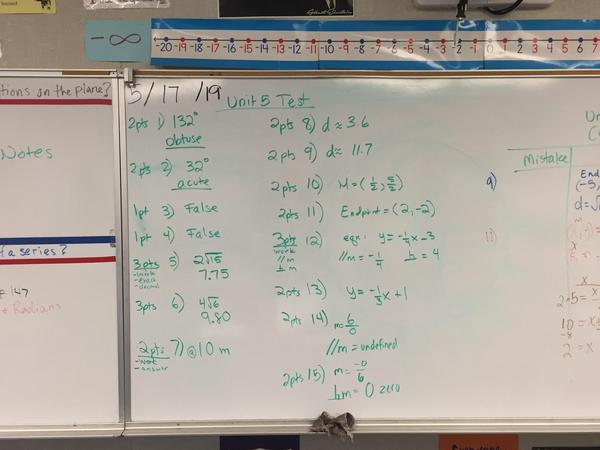 -∞
-20 -19 -18 -17 -16 -15 -14 -13 -12 -11 -10 -9 -8 -7 -6 -5 -4 -3 -2 -1 0 1 2 3 4 5 6 7
tions on the plane?
Notes
f a series?
147
Radians
5/17/19
Unit 5 Test
2pts 1) 132°
obtuse
2pts 2) 32°
acute
1pt 3) False
1pt 4) False
3pts 5) 2√15
-work
-exact
-decimal
7.75
3pts 6) 4√6
9.80
2pts 7) @ 10 m
-work
-answer
2pts 8) d ≈ 3.6
2pts 9) d ≈ 11.7
2pts 10) M = (1/2, 5/2)
2pts 11) Endpoint = (2, -2)
3pts 12) eqn: y = -1/4x - 3
work
//m
⊥m
//m = -1/4 ⊥ = 4
2pts 13) y = -1/3x + 1
2pts 14) m = 6/0
//m = undefined
2pts 15) m = -0/6
⊥m = 0 zero
Mistake
9)
End
(-5,
d = √
11)
10 = x
-8
2 = x